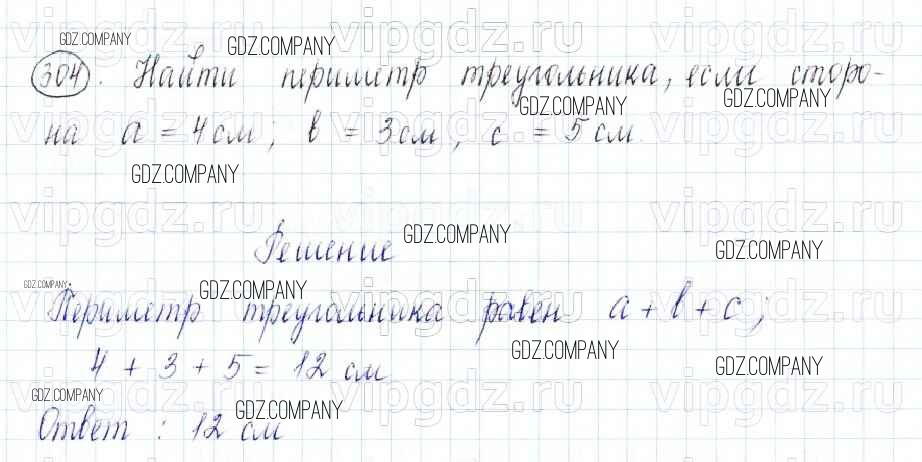 304. Найти периметр треугольника, если сторо-
на a = 4 см; b = 3 см, c = 5 см.
Решение
Периметр треугольника равен a + b + c;
4 + 3 + 5 = 12 см
Ответ: 12 см
GDZ.COMPANY
GDZ.COMPANY
GDZ.COMPANY
GDZ.COMPANY
GDZ.COMPANY
GDZ.COMPANY
GDZ.COMPANY
GDZ.COMPANY
GDZ.COMPANY
GDZ.COMPANY
GDZ.COMPANY
GDZ.COMPANY
GDZ.COMPANY
vipgdz.ru vipgdz.ru vipgdz.ru
vipgdz.ru vipgdz.ru vipgdz.ru
vipgdz.ru vipgdz.ru vipgdz.ru
vipgdz.ru vipgdz.ru vipgdz.ru
vipgdz.ru vipgdz.ru vipgdz.ru